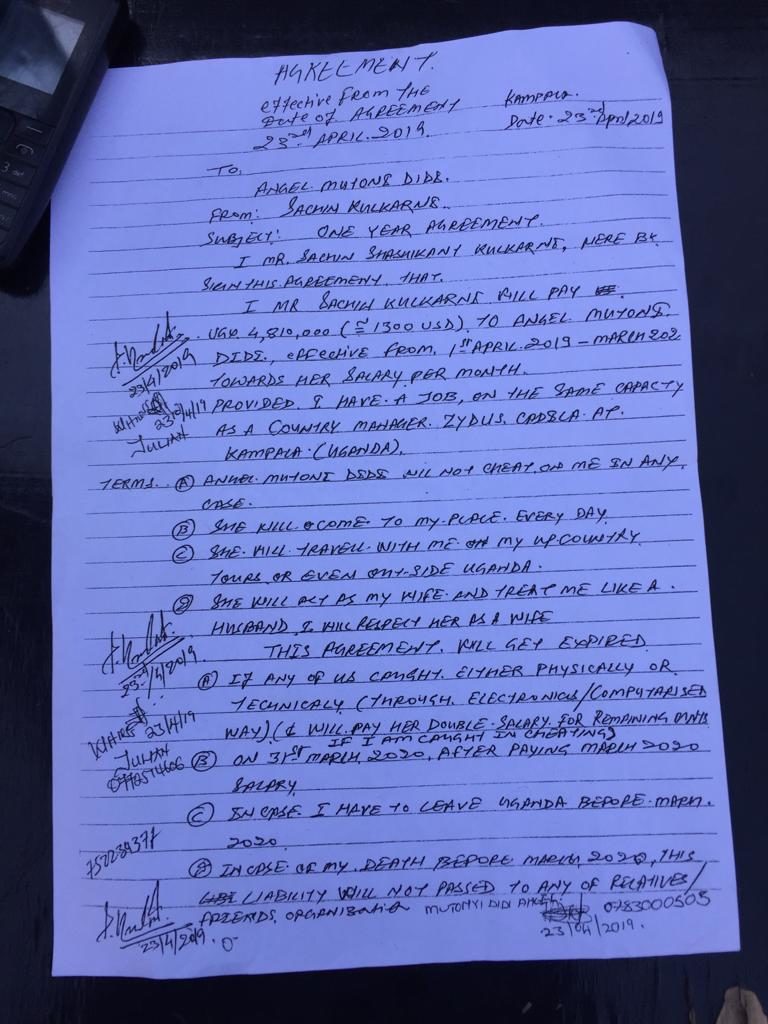 AGREEMENT.
effective from the
Date of AGREEMENT
23rd APRIL. 2019.
KAMPALA.
Date. 23rd April 2019
TO,
ANGEL MUTONI DIDI.
FROM: SACHIN KULKARNI.
SUBJECT: ONE YEAR AGREEMENT.
I MR. SACHIN SHASHIKANT KULKARNI, HERE BY
SIGN THIS AGREEMENT THAT.
I MR SACHIN KULKARNI WILL PAY
UGX. 4,810,000 (≅ 1300 USD) TO ANGEL MUTONI.
DIDI., effective FROM. 1ST APRIL. 2019 - MARCH 202
TOWARDS HER SALARY PER MONTH.
PROVIDED. I HAVE A JOB, ON THE SAME CAPACTY
AS A COUNTRY MANAGER. ZYDUS. CADILA AT.
KAMPALA. (UGANDA).
23/4/2019
Witness
23/4/19
JULIAN
TERMS. (A) ANGEL MUTONI DIDI WIL NOT CHEAT ON ME IN ANY
CASE.
(B) SHE WILL COME TO MY PLACE. EVERY DAY
(C) SHE. WILL TRAVELL WITH ME ON MY UPCOUNTRY
TOURS OR EVEN OUT-SIDE UGANDA.
(D) SHE WILL ACT AS MY WIFE AND TREAT ME LIKE A.
HUSBAND. I WILL RESPECT HER AS A WIFE
THIS AGREEMENT. WILL GET EXPIRED
(A) IF ANY OF US CAUGHT. EITHER PHYSICALLY OR
TECHNICALY (THROUGH. ELECTRONICS/COMPUTARISED
WAY) (I WILL PAY HER DOUBLE SALARY. FOR REMAINING MNTS
IF I AM CAUGHT IN CHEATING)
(B) ON 31ST MARCH, 2020, AFTER PAYING MARCH 2020
SALARY
(C) IN CASE. I HAVE TO LEAVE UGANDA BEFORE MARH.
2020.
(D) IN CASE OF MY. DEATH BEFORE MARCH, 2020, THIS
LIABILITY WILL NOT PASSED TO ANY OF RELATIVES/
FRIENDS, ORGANISATION
23rd/4/2019
23/4/19
JULIAN
0772574606
752234377
23/4/2019.
MUTONYI DIDI ANGEL.
0783000505
23/04/2019.